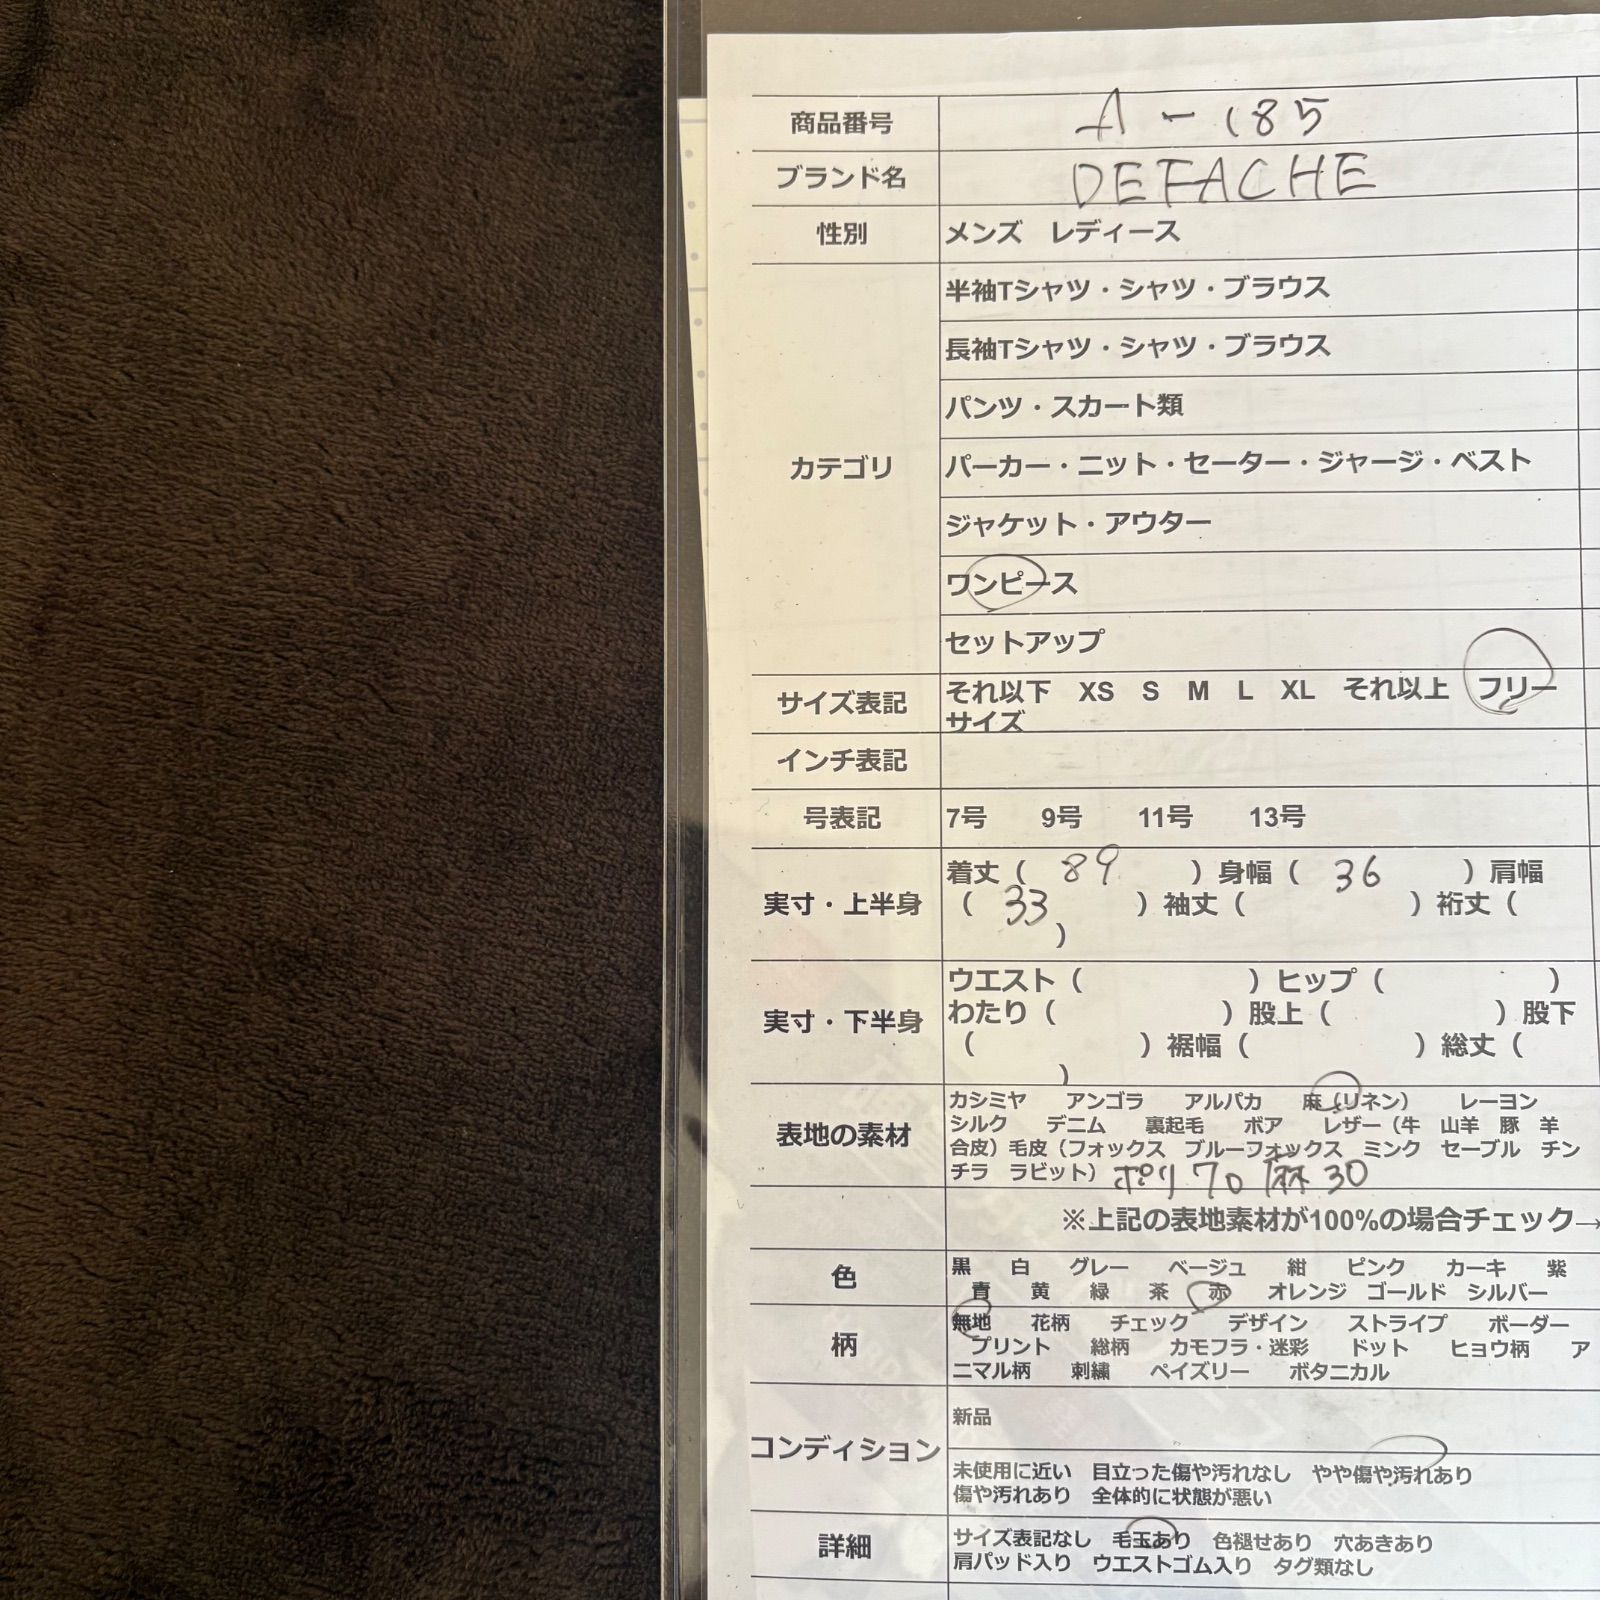 商品番号 A-185
ブランド名 DEFACHE
性別 メンズ レディース
カテゴリ
半袖Tシャツ・シャツ・ブラウス
長袖Tシャツ・シャツ・ブラウス
パンツ・スカート類
パーカー・ニット・セーター・ジャージ・ベスト
ジャケット・アウター
ワンピース
セットアップ
サイズ表記 それ以下 XS S M L XL それ以上 フリー
サイズ
インチ表記
号表記 7号 9号 11号 13号
実寸・上半身 着丈（ 89 ）身幅（ 36 ）肩幅
（ 33 ）袖丈（ ）裄丈（
）
実寸・下半身 ウエスト（ ）ヒップ（ ）
わたり（ ）股上（ ）股下
（ ）裾幅（ ）総丈（
）
表地の素材 カシミヤ アンゴラ アルパカ 麻（リネン） レーヨン
シルク デニム 裏起毛 ボア レザー（牛 山羊 豚 羊
合皮）毛皮（フォックス ブルーフォックス ミンク セーブル チン
チラ ラビット） ポリ70 麻30
※上記の表地素材が100%の場合チェック→
色 黒 白 グレー ベージュ 紺 ピンク カーキ 紫
青 黄 緑 茶 赤 オレンジ ゴールド シルバー
柄 無地 花柄 チェック デザイン ストライプ ボーダー
プリント 総柄 カモフラ・迷彩 ドット ヒョウ柄 ア
ニマル柄 刺繍 ペイズリー ボタニカル
コンディション 新品
未使用に近い 目立った傷や汚れなし やや傷や汚れあり
傷や汚れあり 全体的に状態が悪い
詳細 サイズ表記なし 毛玉あり 色褪せあり 穴あきあり
肩パッド入り ウエストゴム入り タグ類なし